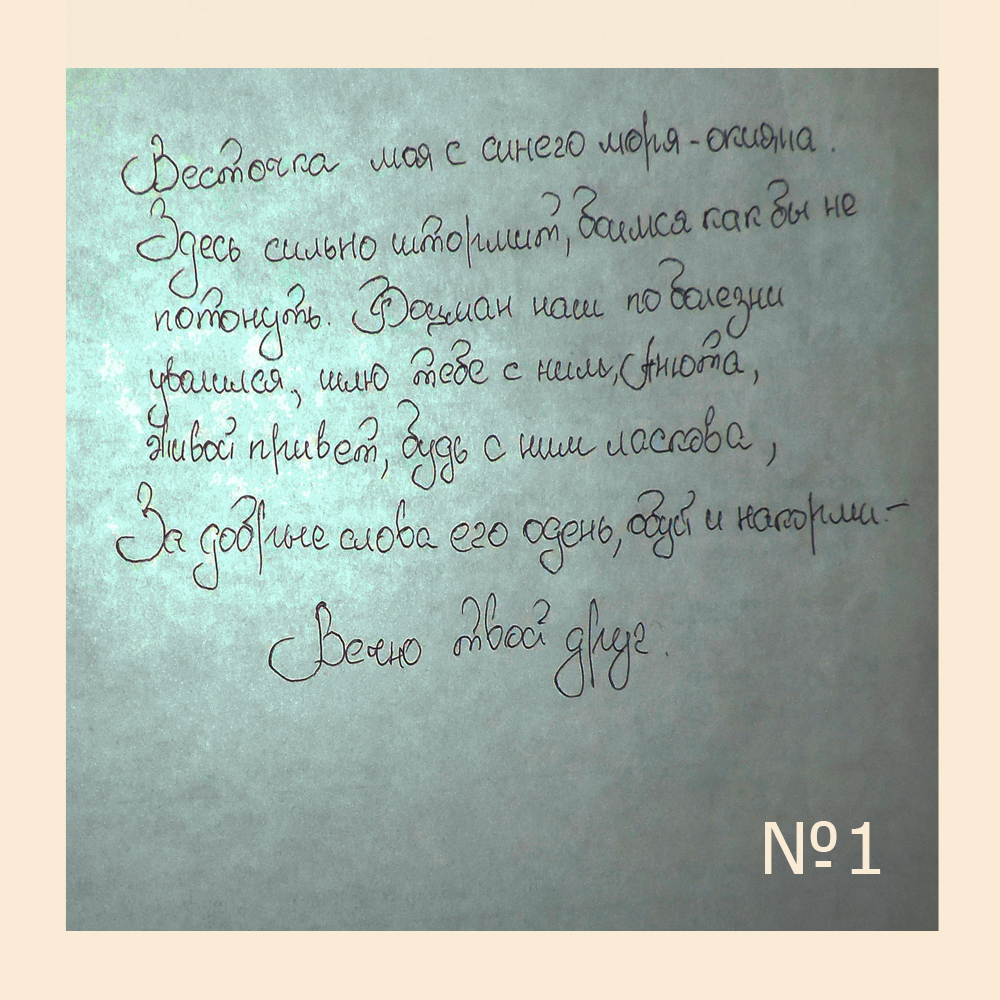 Весточка моя с синего моря-окияна.
Здесь сильно штормит, боимся как бы не
потонуть. Боцман наш по болезни
уволился, шлю тебе с ним, Анюта,
живой привет, будь с ним ласкова,
За добрые слова его одень, обуй и накорми.-
Вечно твой друг.
№1